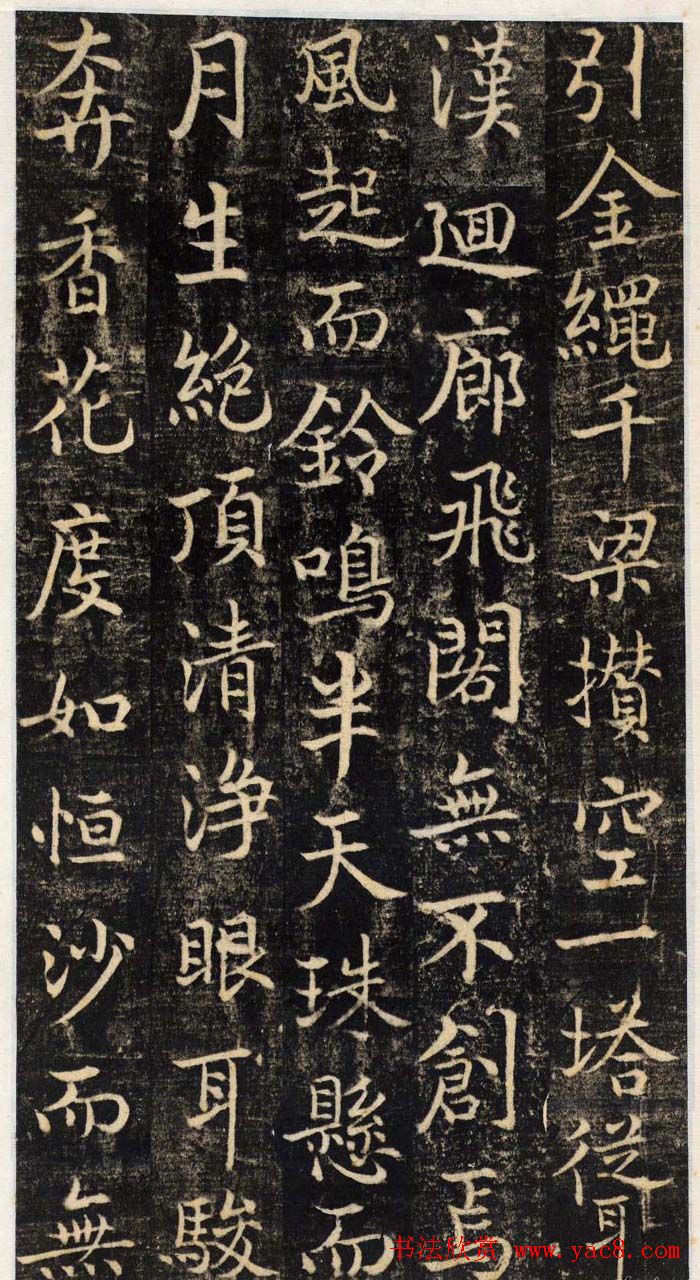 引金繩千梁攢空一塔聳
漢廻廊飛閣無不創焉
風起而鈴鳴半天珠懸而
月生絶頂清浄眼耳駿
奔香花度如恒沙而無
书法欣赏 www.yac8.com